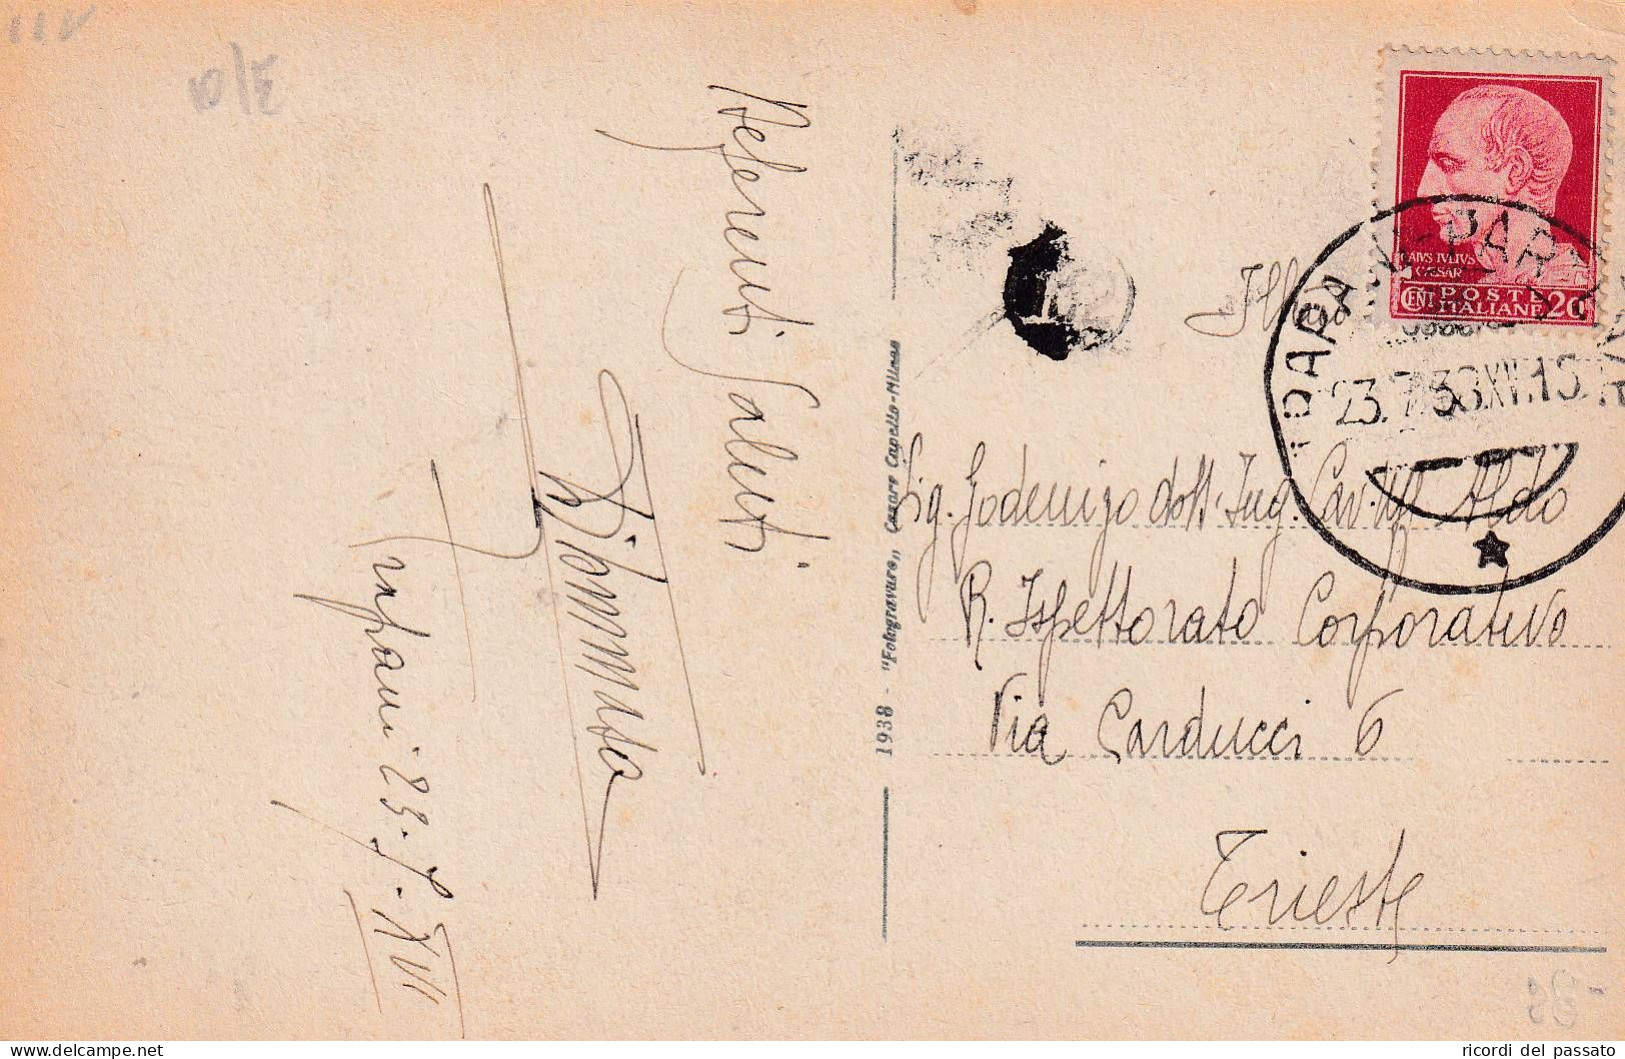 Referenti Saluti
Trapani 23.7.XVI
1938 - "Fotogravure" Cesare Capello-Milano
Ill.mo
Sig. Godenigo dott. Ing. Cav. Uff. Aldo
R. Ispettorato Corporativo
Via Carducci 6
Trieste
CAIVS IVLIVS
CÆSAR
CENT. POSTE 20
ITALIANE
TRAPANI-PARTENZA
23.7.38.XVI.15
ricordi del passato